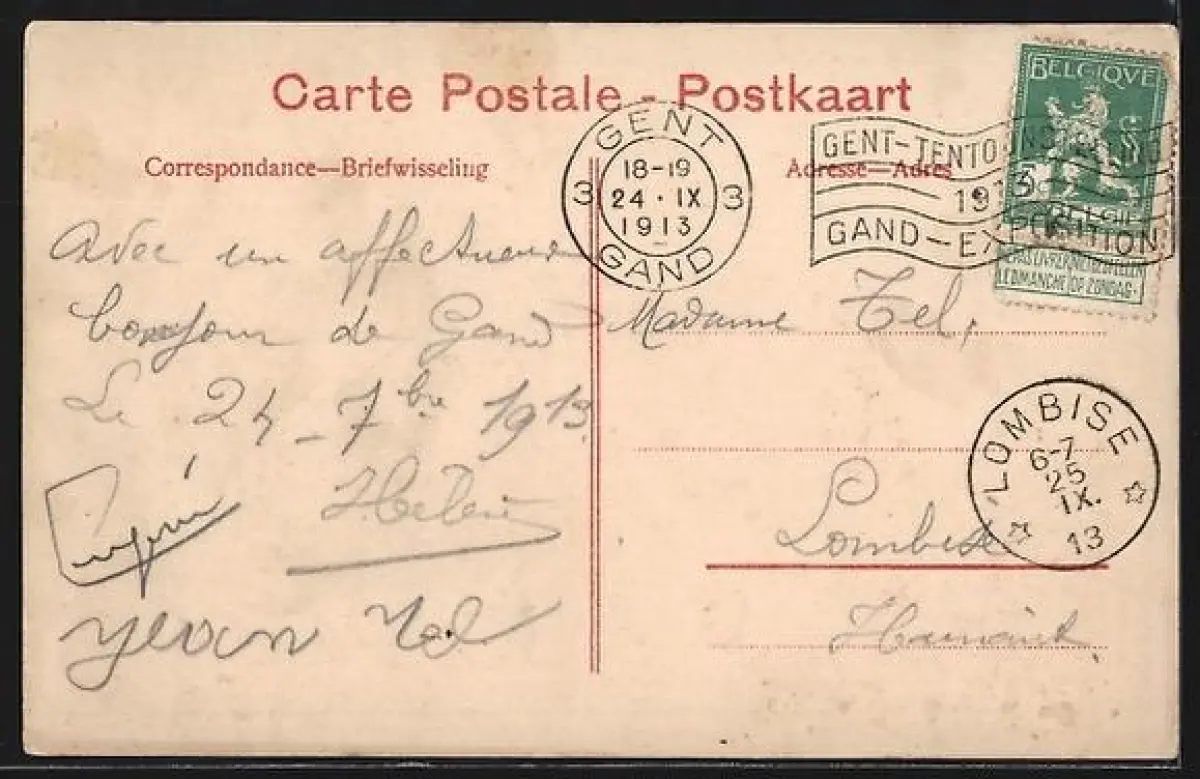 Carte Postale - Postkaart
Correspondance—Briefwisseling
Adresse—Adres
GENT
3 18-19 3
24 · IX
1913
GAND
GENT-TENTO
191
GAND-EXPOSITION
BELGIQVE
BELGIË
NE PAS LIVRER NIET BESTELLEN
LE DIMANCHE OP ZONDAG
Avec un affectueux
bonjour de Gand
Le 24 - 7bre 1913
Helen
Madame Tel,
Lombise
Hainaut
LOMBISE
6-7
25
IX.
13